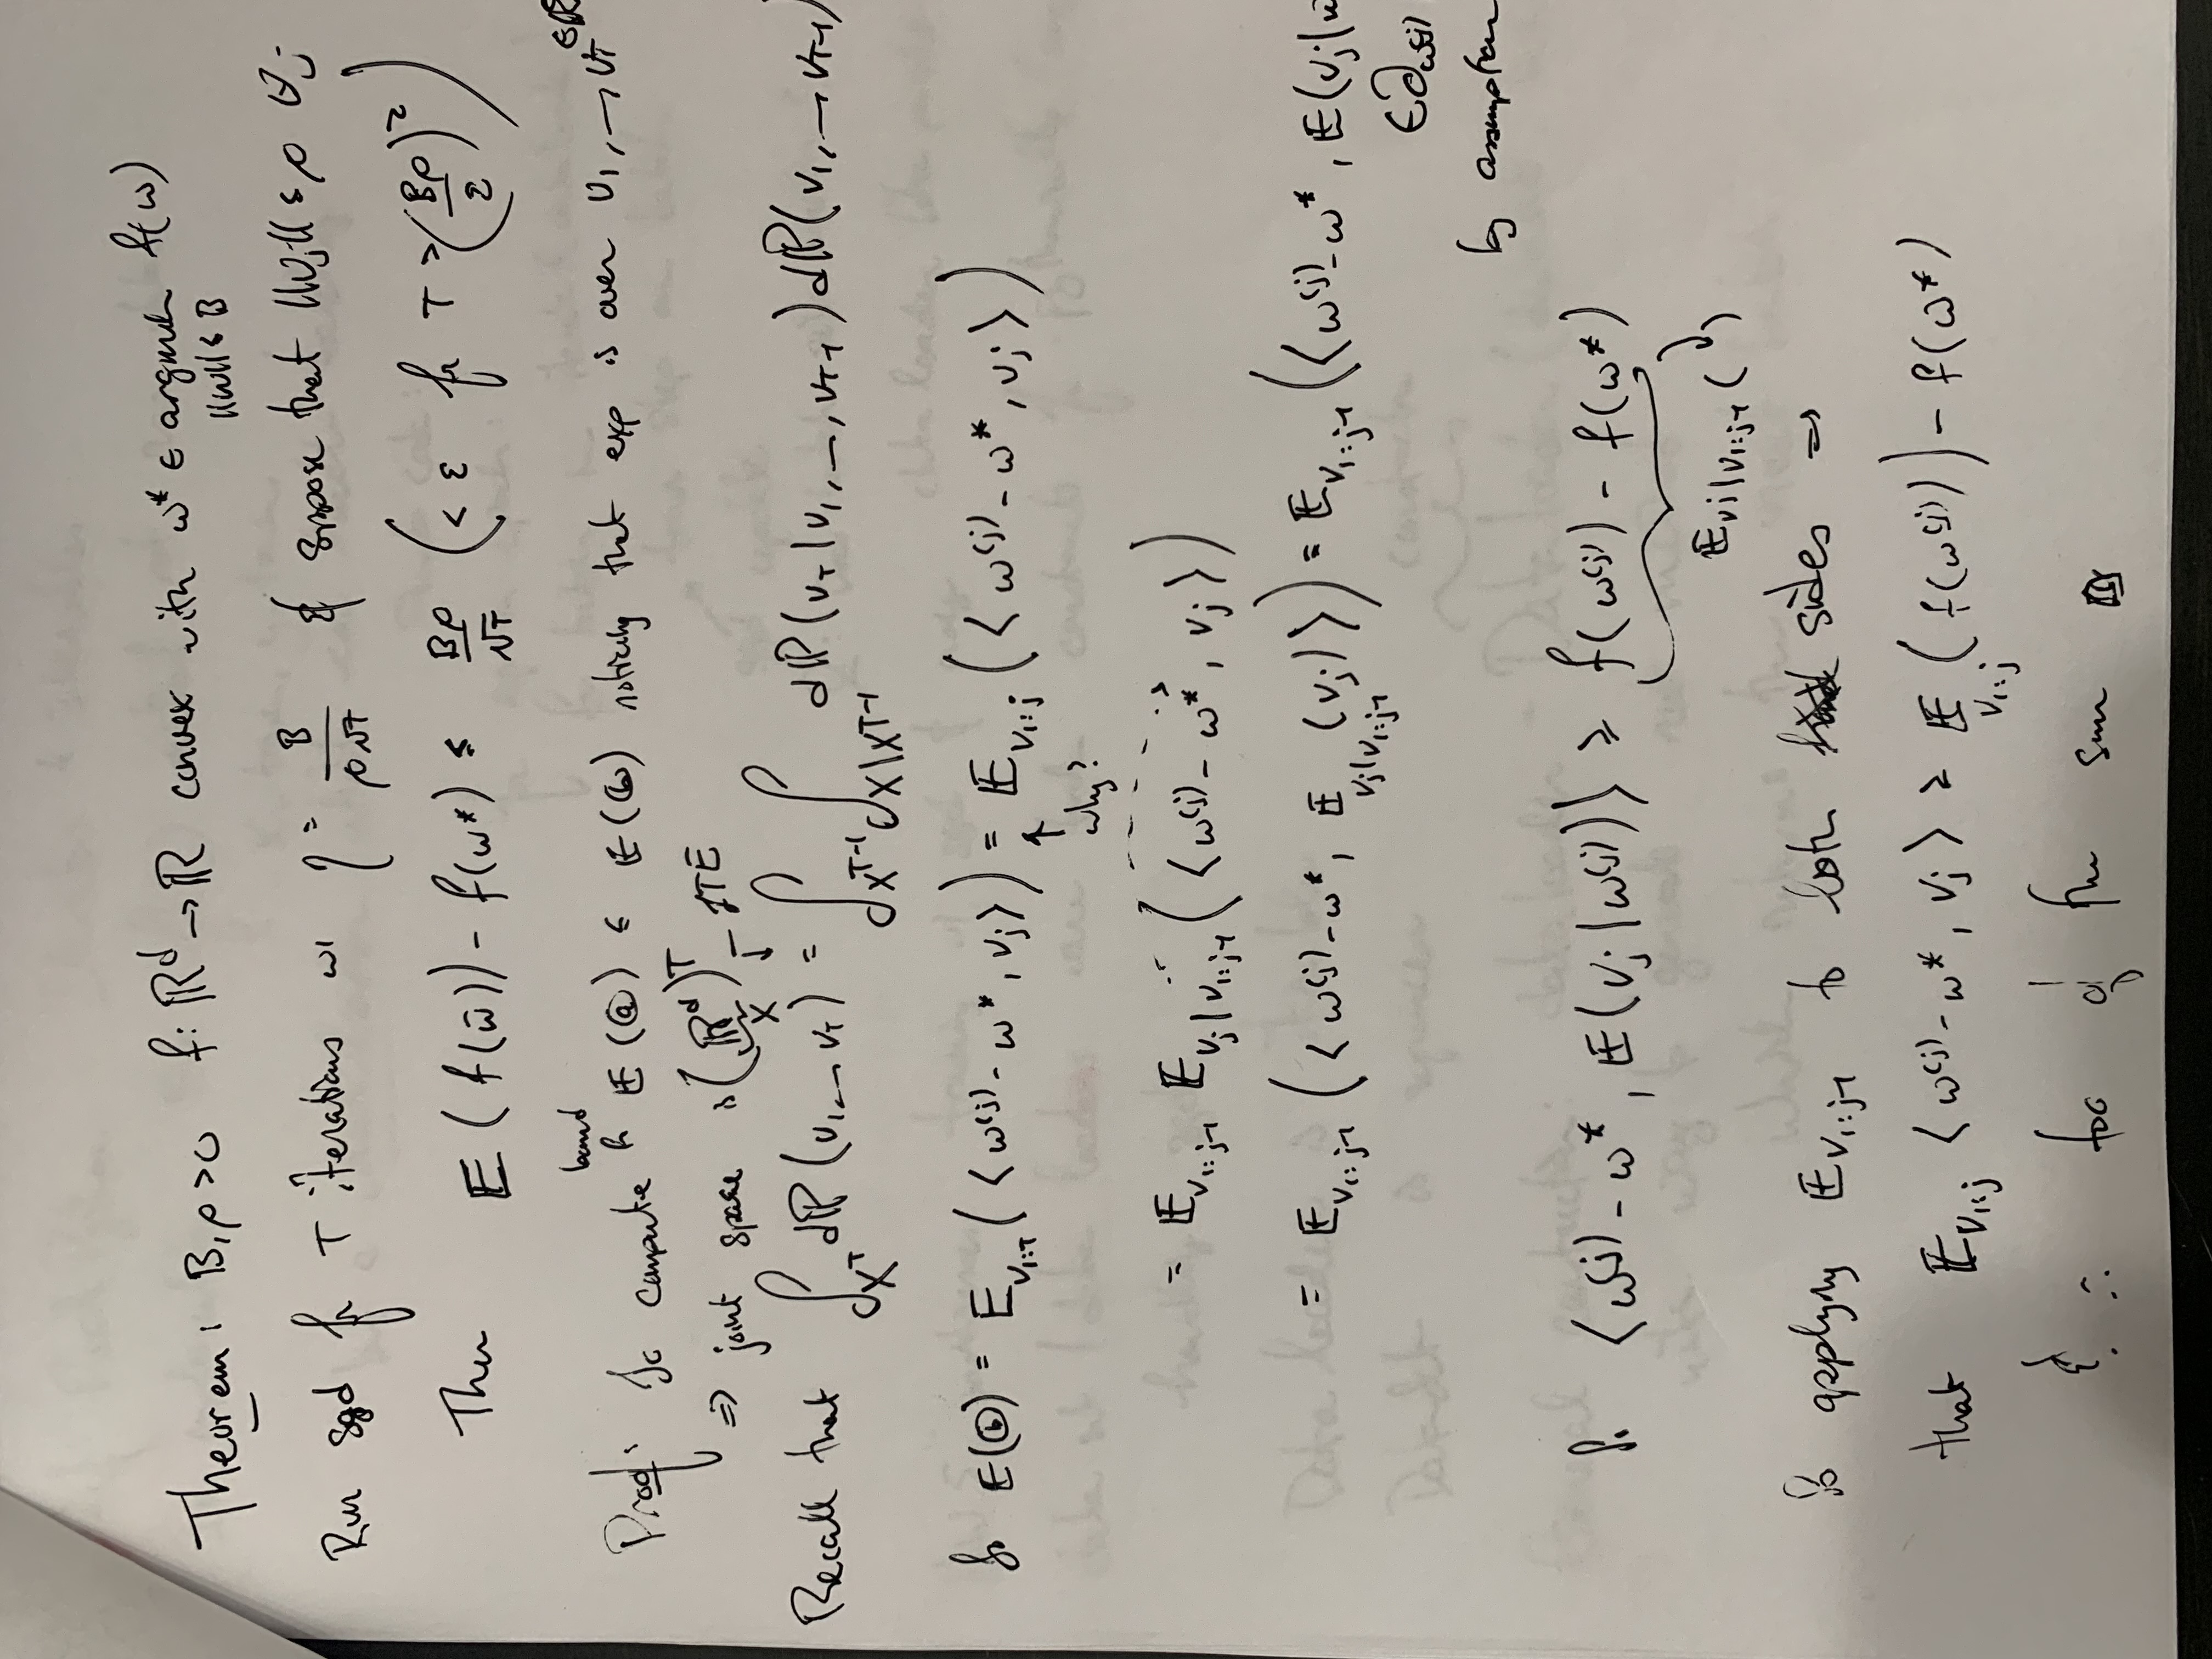 Theorem: B, ρ > 0 f: ℝ^d → ℝ convex with w* ∈ argmin_{||w|| ≤ B} f(w)
Run sgd for T iterations w/ η = B/(ρ√T) & suppose that ||v_j|| ≤ ρ ∀j
Then 𝔼(f(w̄)) - f(w*) ≤ Bρ/√T (< ε for T > (Bρ/ε)²)
Proof: To compute bound 𝔼(ⓐ) ≤ 𝔼(ⓑ) noticing that exp is over v_1, ..., v_T ∈ ℝ
⇒ joint space is (ℝ^d)^T
X
Recall that ∫_{X^T} dℙ(v_1, ... v_T) = ∫_{X^{T-1}} ∫_{X|X^{T-1}} dℙ(v_T | v_1, ..., v_{T-1}) dℙ(v_1, ..., v_{T-1})
So 𝔼(ⓑ) = 𝔼_{v_{1:T}}(⟨w^{(j)} - w*, v_j⟩) = 𝔼_{v_{1:j}}(⟨w^{(j)} - w*, v_j⟩)
↑
why?
= 𝔼_{v_{1:j-1}} 𝔼_{v_j | v_{1:j-1}}(⟨w^{(j)} - w*, v_j⟩)
= 𝔼_{v_{1:j-1}}(⟨w^{(j)} - w*, 𝔼_{v_j | v_{1:j-1}}(v_j)⟩) = 𝔼_{v_{1:j-1}}(⟨w^{(j)} - w*, 𝔼(v_j | w
∈ ∂_{w^{(j)}}
by assumption
So ⟨w^{(j)} - w*, 𝔼(v_j | w^{(j)})⟩ ≥ f(w^{(j)}) - f(w*)
𝔼_{v_j | v_{1:j-1}}( )
So applying 𝔼_{v_{1:j-1}} to both sides ⇒
that 𝔼_{v_{1:j}} ⟨w^{(j)} - w*, v_j⟩ ≥ 𝔼_{v_{1:j}}(f(w^{(j)})) - f(w*)
& ∴ too of the sum